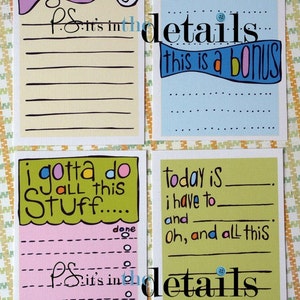 P.S. it's in the details
this is a bonus
i gotta do
all this
Stuff.....
done
today is
i have to
and
oh, and all this
P.S. it's in the details